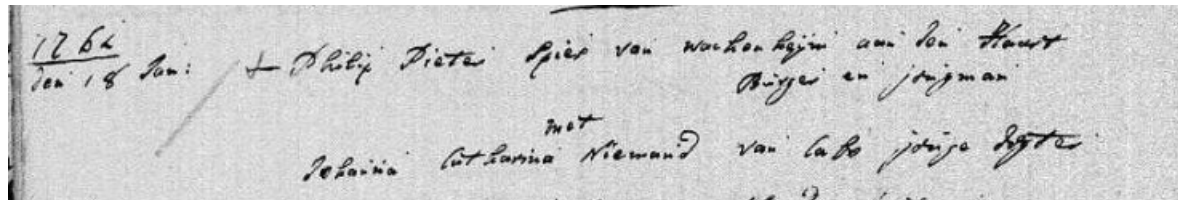 1762
den 18 Jan: Philip Pieter Spies van Wachenheijm aan den Haart
Burger en jongman
met
Johanna Catharina Niemand van Cabo jonge dogter